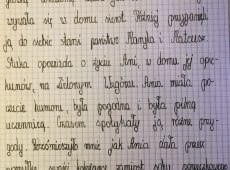 żywała się w domu sierot. Później przygarnęli
ją do siebie starsi państwo Maryla i Mateusz.
Sztuka opowiada o życiu Ani, w domu jej opie-
kunów, na Zielonym Wzgórzu. Ania miała po-
czucie humoru, była pogodna i była pilną
uczennicą. Czasem spotykały ją różne przy-
gody. Rozśmieszyło mnie jak Ania dała przez
pomyłkę zamiast soku